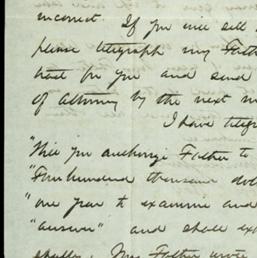 incorrect. If you will sell
please telegraph my Father
tract for you and send
of Attorney by the next m
I have telegr
"Will you authorize Father to
"Four hundred thousand dol
"one year to examine and
"answer" and shall ex
My Father wrote